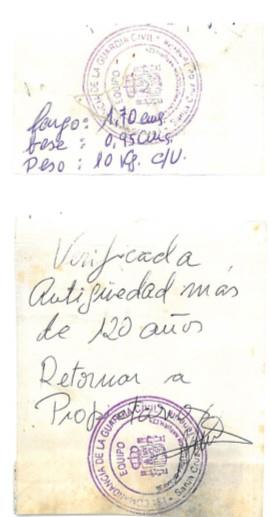 DE LA GUARDIA CIVIL
EQUIPO
Largo: 1,70 cmg.
base: 0,95 cmg.
Peso: 10 Kg. c/u.
Verificada
Antigüedad más
de 120 años
Retornar a
Propietario
COMANDANCIA DE LA GUARDIA CIVIL
EQUIPO
Santa Cruz